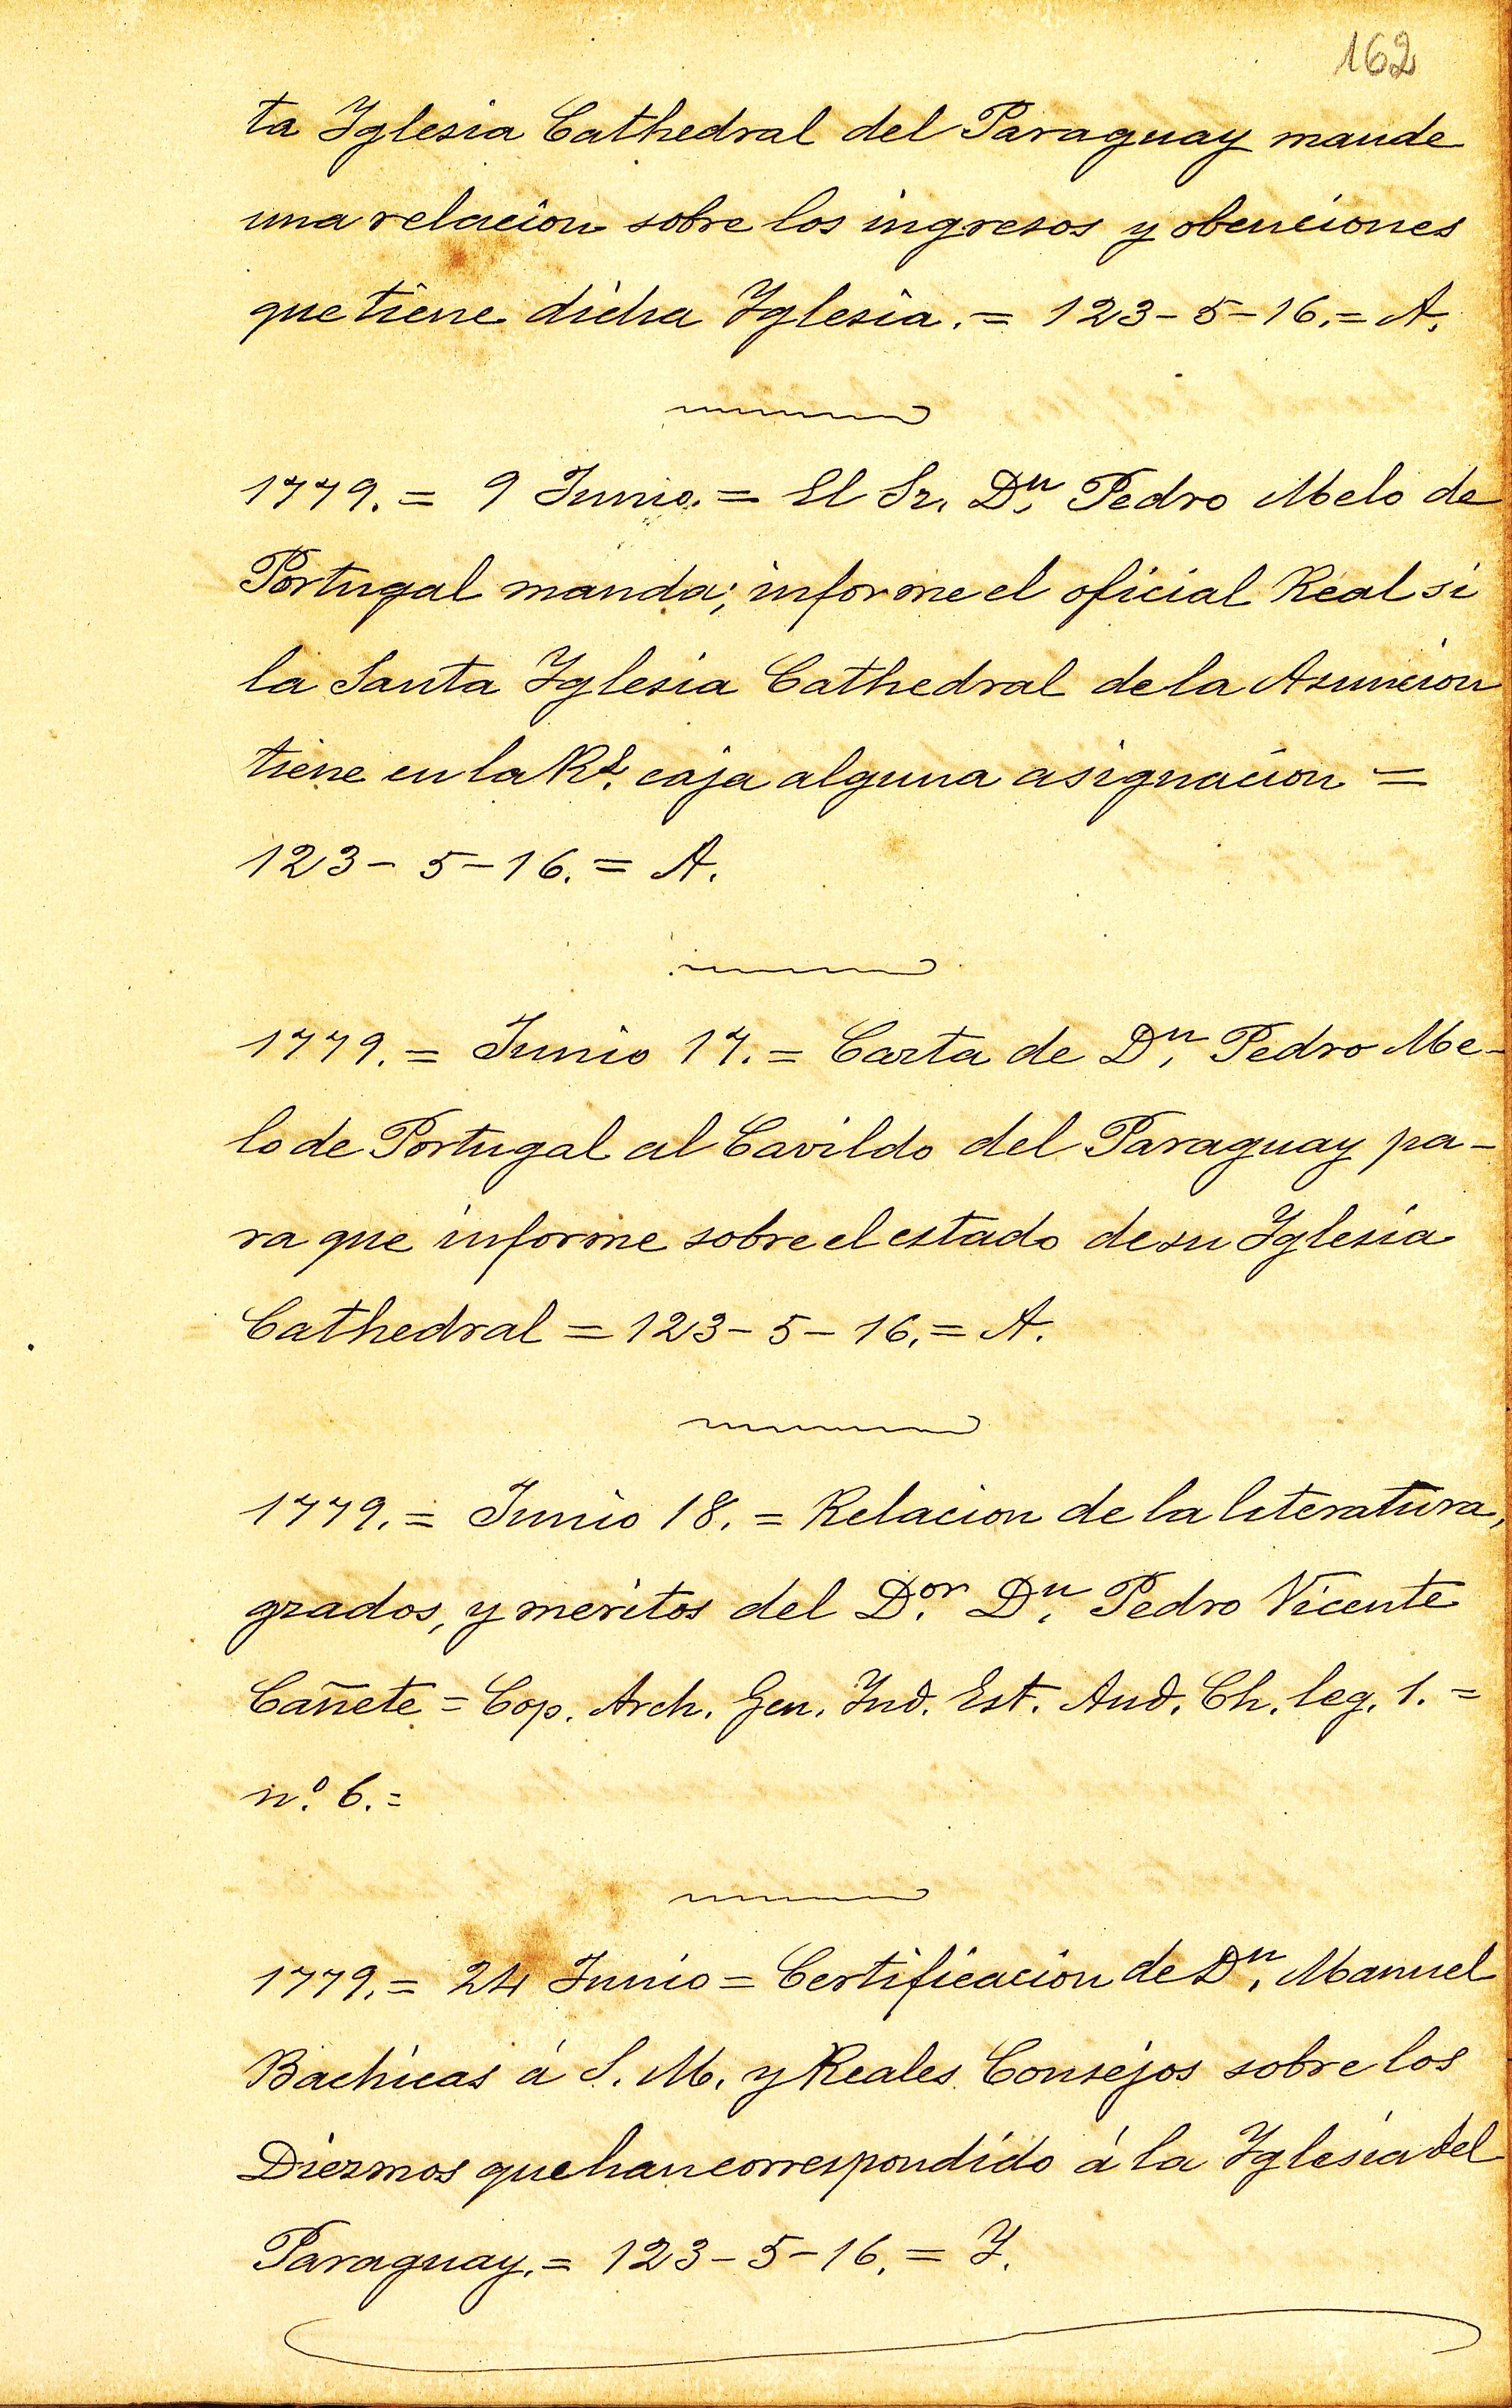 162
ta Iglesia Cathedral del Paraguay mande
una relacion sobre los ingresos y obenciones
que tiene dicha Iglesia. = 123-5-16. = A.
1779. = 9 Junio. = El Sr. Dn. Pedro Melo de
Portugal manda; informe el oficial Real si
la Santa Iglesia Cathedral de la Asuncion
tiene en la Rl. caja alguna asignacion =
123-5-16. = A.
1779. = Junio 17. = Carta de Dn. Pedro Me-
lo de Portugal al Cavildo del Paraguay pa-
ra que informe sobre el estado de su Iglesia
Cathedral = 123-5-16. = A.
1779. = Junio 18. = Relacion de la literatura,
grados, y meritos del Dor. Dn. Pedro Vicente
Cañete = Cop. Arch. Gen. Ind. Est. Aud. Ch. leg. 1. =
nº. 6. =
1779. = 24 Junio = Certificacion de Dn. Manuel
Bachicas á S. M. y Reales Consejos sobre los
Diezmos que han correspondido á la Iglesia del
Paraguay. = 123-5-16. = I.